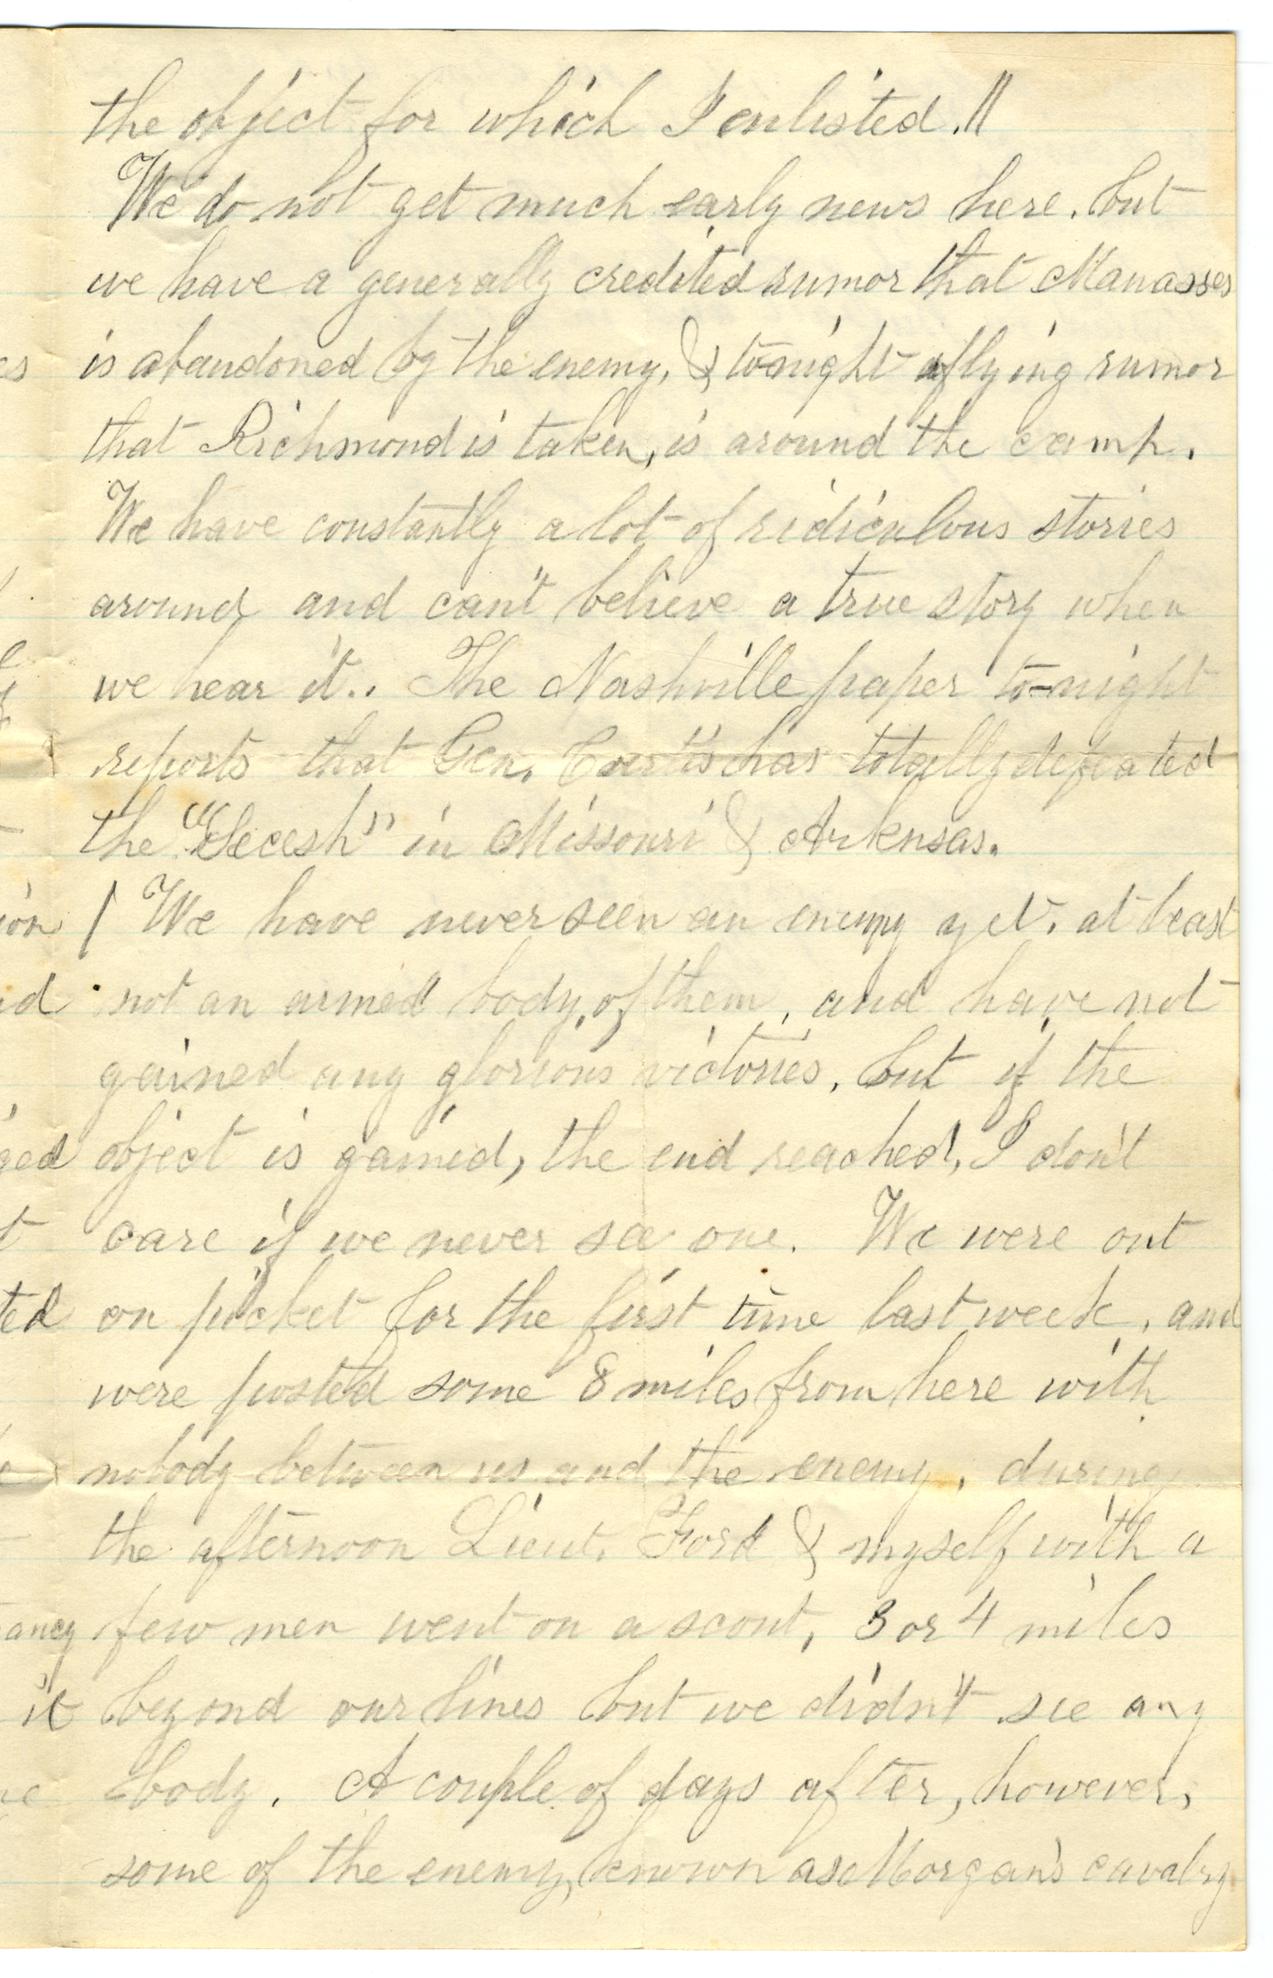 the object for which I enlisted.||
We do not get much early news here. but
we have a generally credited rumor that Manasses
is abandoned by the enemy, & to-night a flying rumor
that Richmond is taken, is around the camp.
We have constantly a lot of ridiculous stories
around and can't believe a true story when
we hear it.. The Nashville paper to-night
reports that Gen. Curtis has totally defeated
the "Secesh" in Missouri & Arkensas.
We have never seen an enemy yet. at least
not an armed body, of them, and have not
gained any glorious victories, but if the
object is gained, the end reached, I don't
care if we never see one. We were out
on picket for the first time last week, and
were posted some 8 miles from here with
nobody between us and the enemy, during
the afternoon Lieut. Ford & myself with a
few men went on a scout, 3 or 4 miles
beyond our lines but we didn't see any
body. A couple of days after, however,
some of the enemy, known as Morgan's cavalry